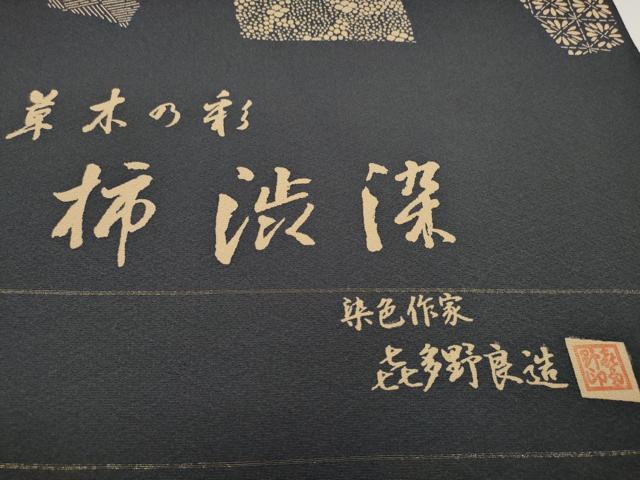 草木の彩
柿渋染
染色作家
㐂多野良造